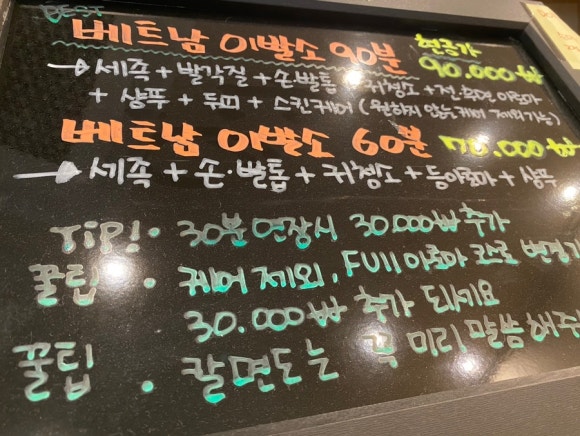 BEST
베트남 이발소 90분 현금가
90.000₩
→ 세족 + 발각질 + 손발톱 + 귀청소 + 전·후면 아로마
+ 샴푸 + 두피 + 스킨케어 (원하지 않는 케어 제외가능)
베트남 이발소 60분 70.000₩
→ 세족 + 손·발톱 + 귀청소 + 등아로마 + 샴푸
TIP! · 30분 연장시 30.000₩ 추가
꿀팁 · 케어 제외, FUll 아로마 코스로 변경
30.000₩ 추가 되세요
꿀팁 · 칼면도는 꼭 미리 말씀해주